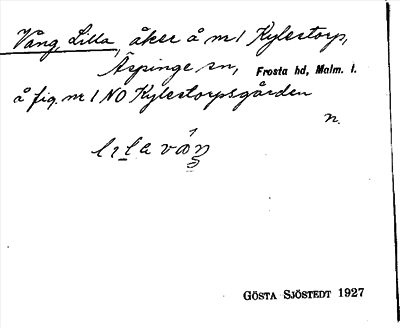 Vång, Lilla, åker å nr 1 Kylestorp,
Äspinge sn, Frosta hd, Malm. l.
å fig. nr 1 NO Kylestorpsgården
n.
GÖSTA SJÖSTEDT 1927